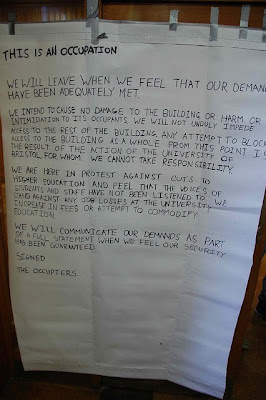 THIS IS AN OCCUPATION
WE WILL LEAVE WHEN WE FEEL THAT OUR DEMAN
HAVE BEEN ADEQUATELY MET.
WE INTEND TO CAUSE NO DAMAGE TO THE BUILDING OR HARM OR
INTIMIDATION TO ITS OCCUPANTS. WE WILL NOT UNDULY IMPEDE
ACCESS TO THE REST OF THE BUILDING, ANY ATTEMPT TO BLOCK
ACCESS TO THE BUILDING AS A WHOLE FROM THIS POINT I
THE RESULT OF THE ACTION OF THE UNIVERSITY OF
BRISTOL FOR WHOM WE CANNOT TAKE RESPONSIBILITY.
WE ARE HERE IN PROTEST AGAINST CUTS TO
HIGHER EDUCATION AND FEEL THAT THE VOICES OF
STUDENTS AND STAFF HAVE NOT BEEN LISTENED TO. WE
STAND AGAINST ANY JOB LOSSES AT THE UNIVERSITY,
INCREASE IN FEES OR ATTEMPT TO COMMODIFY
EDUCATION.
WE WILL COMMUNICATE OUR DEMANDS AS PART
OF A FULL STATEMENT WHEN WE FEEL OUR SECURITY
HAS BEEN GUARANTEED.
SIGNED
THE OCCUPIERS.